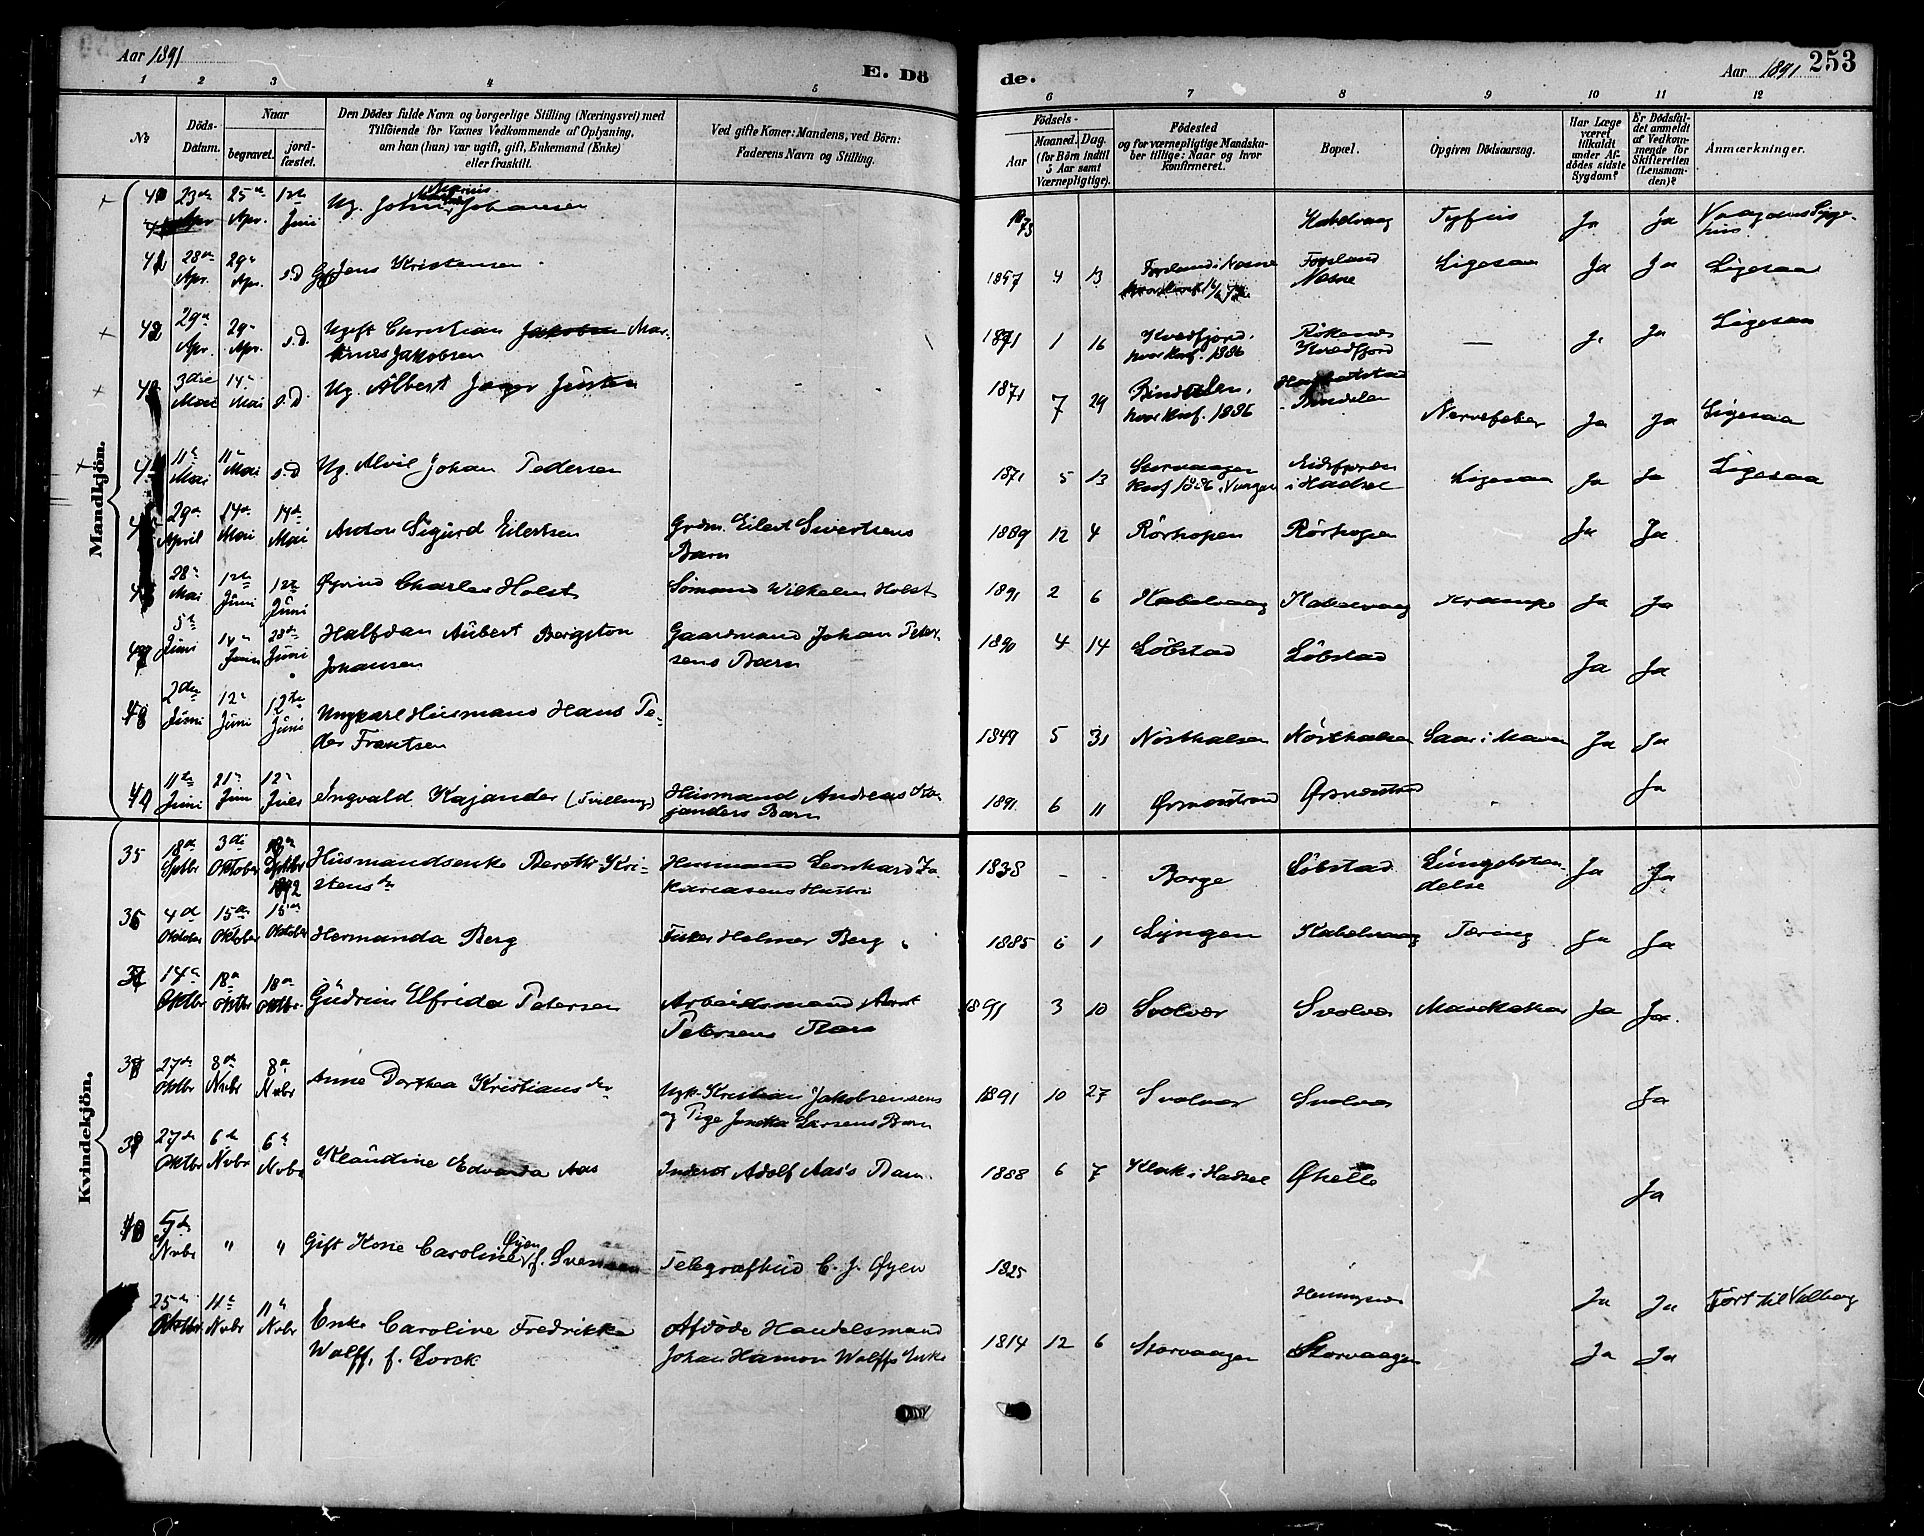 Aar 1891
E. Dö
de.
Aar 1891
253
1 2 3 4 5 6 7 8 9 10 11 12
No
Döds-Datum.
Naar
begravet.
jord-fæstet.
Den Dödes fulde Navn og borgerlige Stilling (Næringsvei) med
Tilföiende for Voxnes Vedkommende af Oplysning,
om han (hun) var ugift, gift, Enkemand (Enke)
eller fraskilt.
Ved gifte Koner: Mandens, ved Börn:
Faderens Navn og Stilling.
Födsels-
Aar
Maaned. Dag.
(for Börn indtil
5 Aar samt
Værnepligtige).
Födested
og for værnepligtige Mandska-
ber tillige: Naar og hvor
konfirmeret.
Bopæl.
Opgiven Dödsaarsag.
Har Læge
været
tilkaldt
under Af-
dödes sidste
Sygdom?
Er Dödsfal-
det anmeldt
af Vedkom-
mende for
Skifteretten
(Lensman-
den)?
Anmærkninger.
Mandkjön.
23de Apr 25de Apr. 12te Juni Ug. Johan Marius Johansen 1873 Kabelvaag Tyfus Ja Ja Vaagans Syge-
hus
28de Apr. 29de Apr. s.D Jens Kristensen 1857 4 13 Forland Ligesaa Ja Ja Ligesaa
29de Apr. 29de Apr. s.D Ugift Christian Mar-
Jakobsen 1871 1 16 Kvedfjord, hvor konf. 1886 Kvedfjord — Ja Ja Ligesaa
3die Mai 14de Mai s.D Ug. Albert 1871 7 29 Bindalen, hvor konf. 1886 Bindalen Nervefeber Ja Ja Ligesaa
11te Mai 11te Mai s.D Ug. Alvil Johan Pedersen 1871 5 13 Storvaagen konf 1886 i Vaagan Eidsfjorden i Hadsel Ligesaa Ja Ja Ligesaa
29de April 14de Mai 14de Mai Anton Sigurd Eilertsen Grdm. Eilert Sivertsens
Barn 1889 12 4 Rörhopen Rörhopen Ja Ja
28de Mai 12te Juni 12te Juni Øyvind Charles Holst Sömand Wilhelm Holst 1891 2 6 Kabelvaag Kabelvaag Krampe Ja Ja
47 5te Juni 14de Juni 28de Juni Halfdan Aubert Bergston
Johansen Gaardmand Johan Peter-
sens Barn 1890 4 14 Löbstad Löbstad Ja Ja
48 2den Juni 12te Juni 12te Juni Ungkarl Husmand Hans Pe-
der Frantsen 1849 5 31 Nösthalsen Nösthalsen Saar i Maven Ja Ja
49 11te Juni 21de Juni 12te Juli Ingvald Kajander (Tvilling) Husmand Andreas Ka-
janders Barn 1891 6 11 Ørsnesstrand Ørsnesstrand Ja
Kvindekjön.
35 18de Septbr 3die Oktober 1892 Husmandsenke Bereth Kri-
stensdr Husmand Leonhard Za-
kariasens Hustru 1838 - - Borge Löbstad Lungebetæn-
delse Ja Ja
36 4de Oktober 15de Oktober 15de Oktober Hermanda Berg Fisker Helmer Berg 1885 6 1 Lyngen Kabelvaag Tæring Ja Ja
37 14de Oktbr 18de Oktbr 18de Oktbr. Gudrun Elfrida Petersen Arbeidsmand
Petersens Barn 1891 3 10 Svolvær Svolvær Ja Ja.
38 27de Oktbr 8de Nvbr 8de Nvbr Anne Dorthea Kristiansdr Ugk. Kristian Jakobsens
og Pige Larsens Barn 1891 10 27 Svolvær Svolvær Ja
39 27de Oktbr 6te Nvbr 6te Nvbr Klaudine Edvarda Aas Inderst Adolf Aas's Barn 1888 6 7 i Hadsel Ørhelle Ja
40 5te Nvbr " " Gift Kone Caroline Øyen f. Svensen Telegrafbud C. J. Øyen 1825 Henningsvær Ja Ja Fört til Valberg
25de Oktbr 11te Nvbr 11te Nvbr Enke Caroline Fredrikke
Wolff, f. Lorck Afdöde Handelsmand
Johan Hamon Wolffs Enke 1814 12 6 Storvaagen Storvaagen Ja Ja